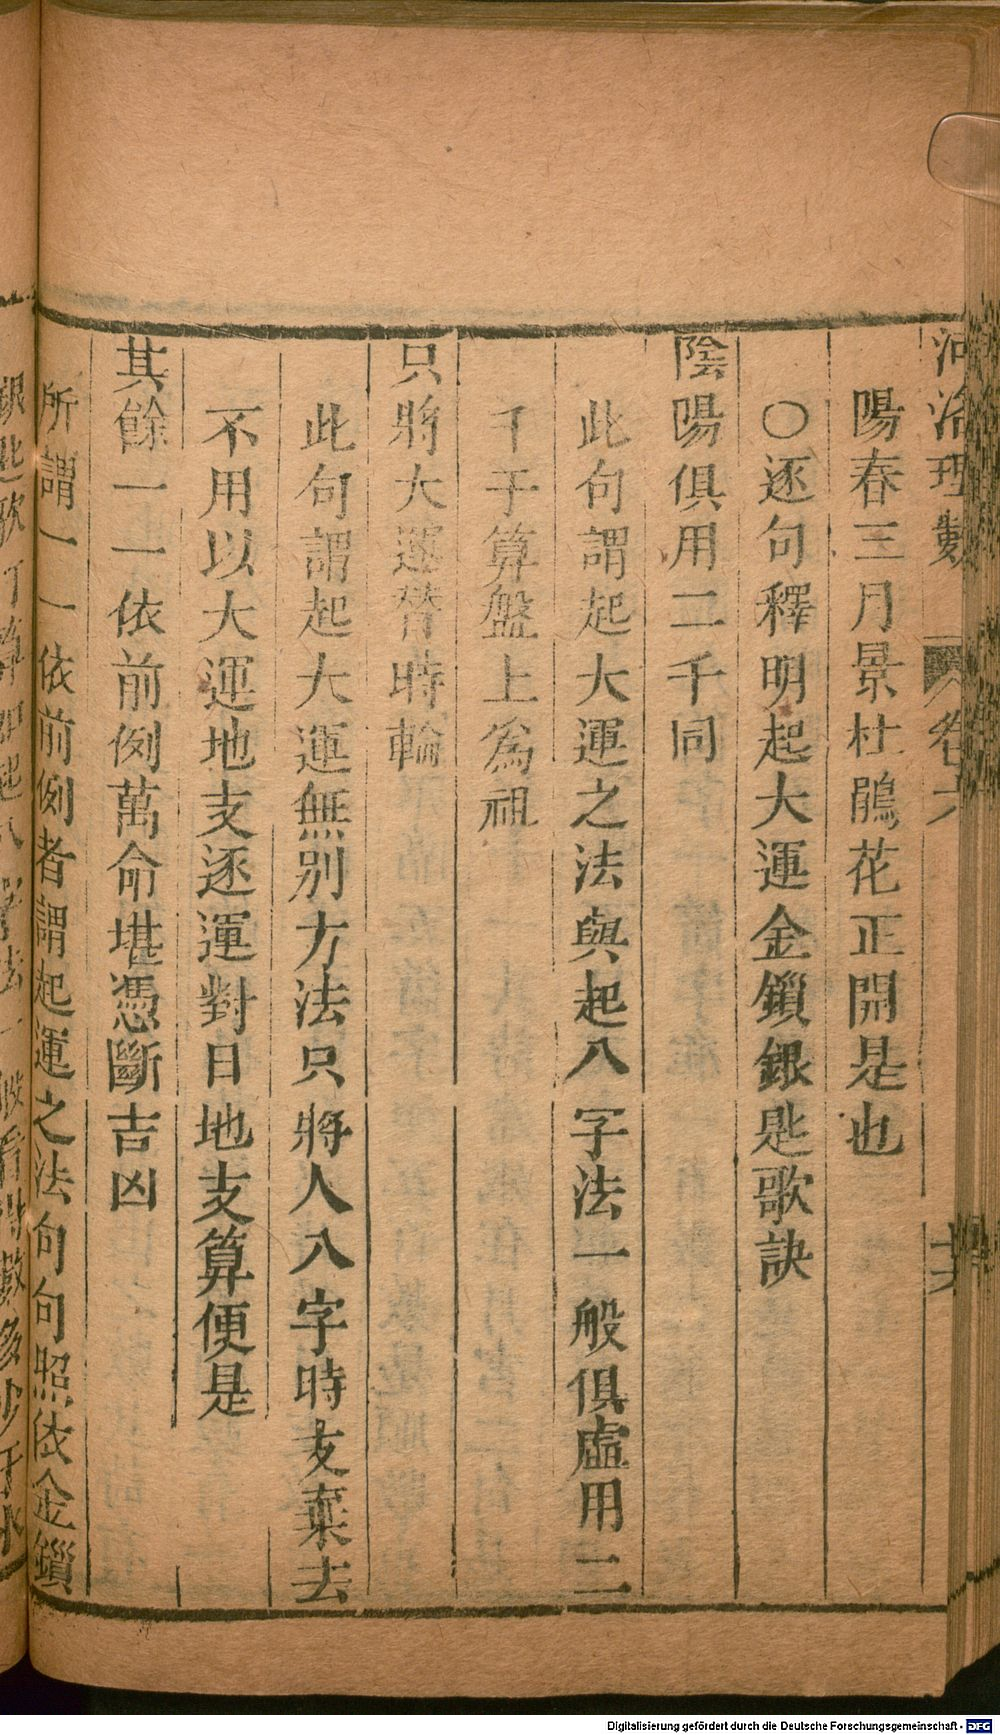 河洛理數 卷六 十六
陽春三月景杜鵑花正開是也
〇逐句釋明起大運金鎖銀匙歌訣
陰陽俱用二千同
此句謂起大運之法與起八字法一般俱虛用二
千于算盤上爲祖
只將大運替時輪
此句謂起大運無別方法只將人八字時支棄去
不用以大運地支逐運對日地支算便是
其餘一一依前例萬命堪憑斷吉凶
所謂一一依前例者謂起運之法句句照依金鎖
銀匙歌
Digitalisierung gefördert durch die Deutsche Forschungsgemeinschaft - DFG